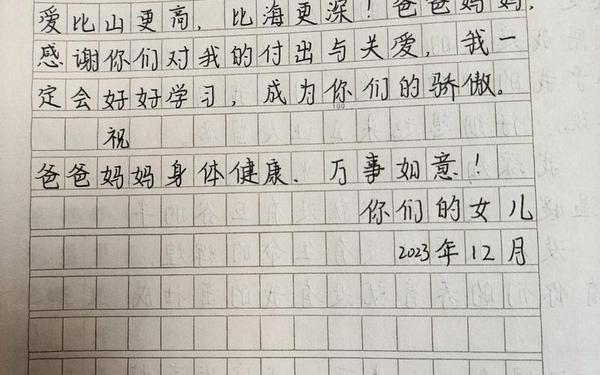 爱比山更高，比海更深！爸爸妈妈，
感谢你们对我的付出与关爱，我一
定会好好学习，成为你们的骄傲。
祝
爸爸妈妈身体健康、万事如意！
你们的女儿
2023年12月